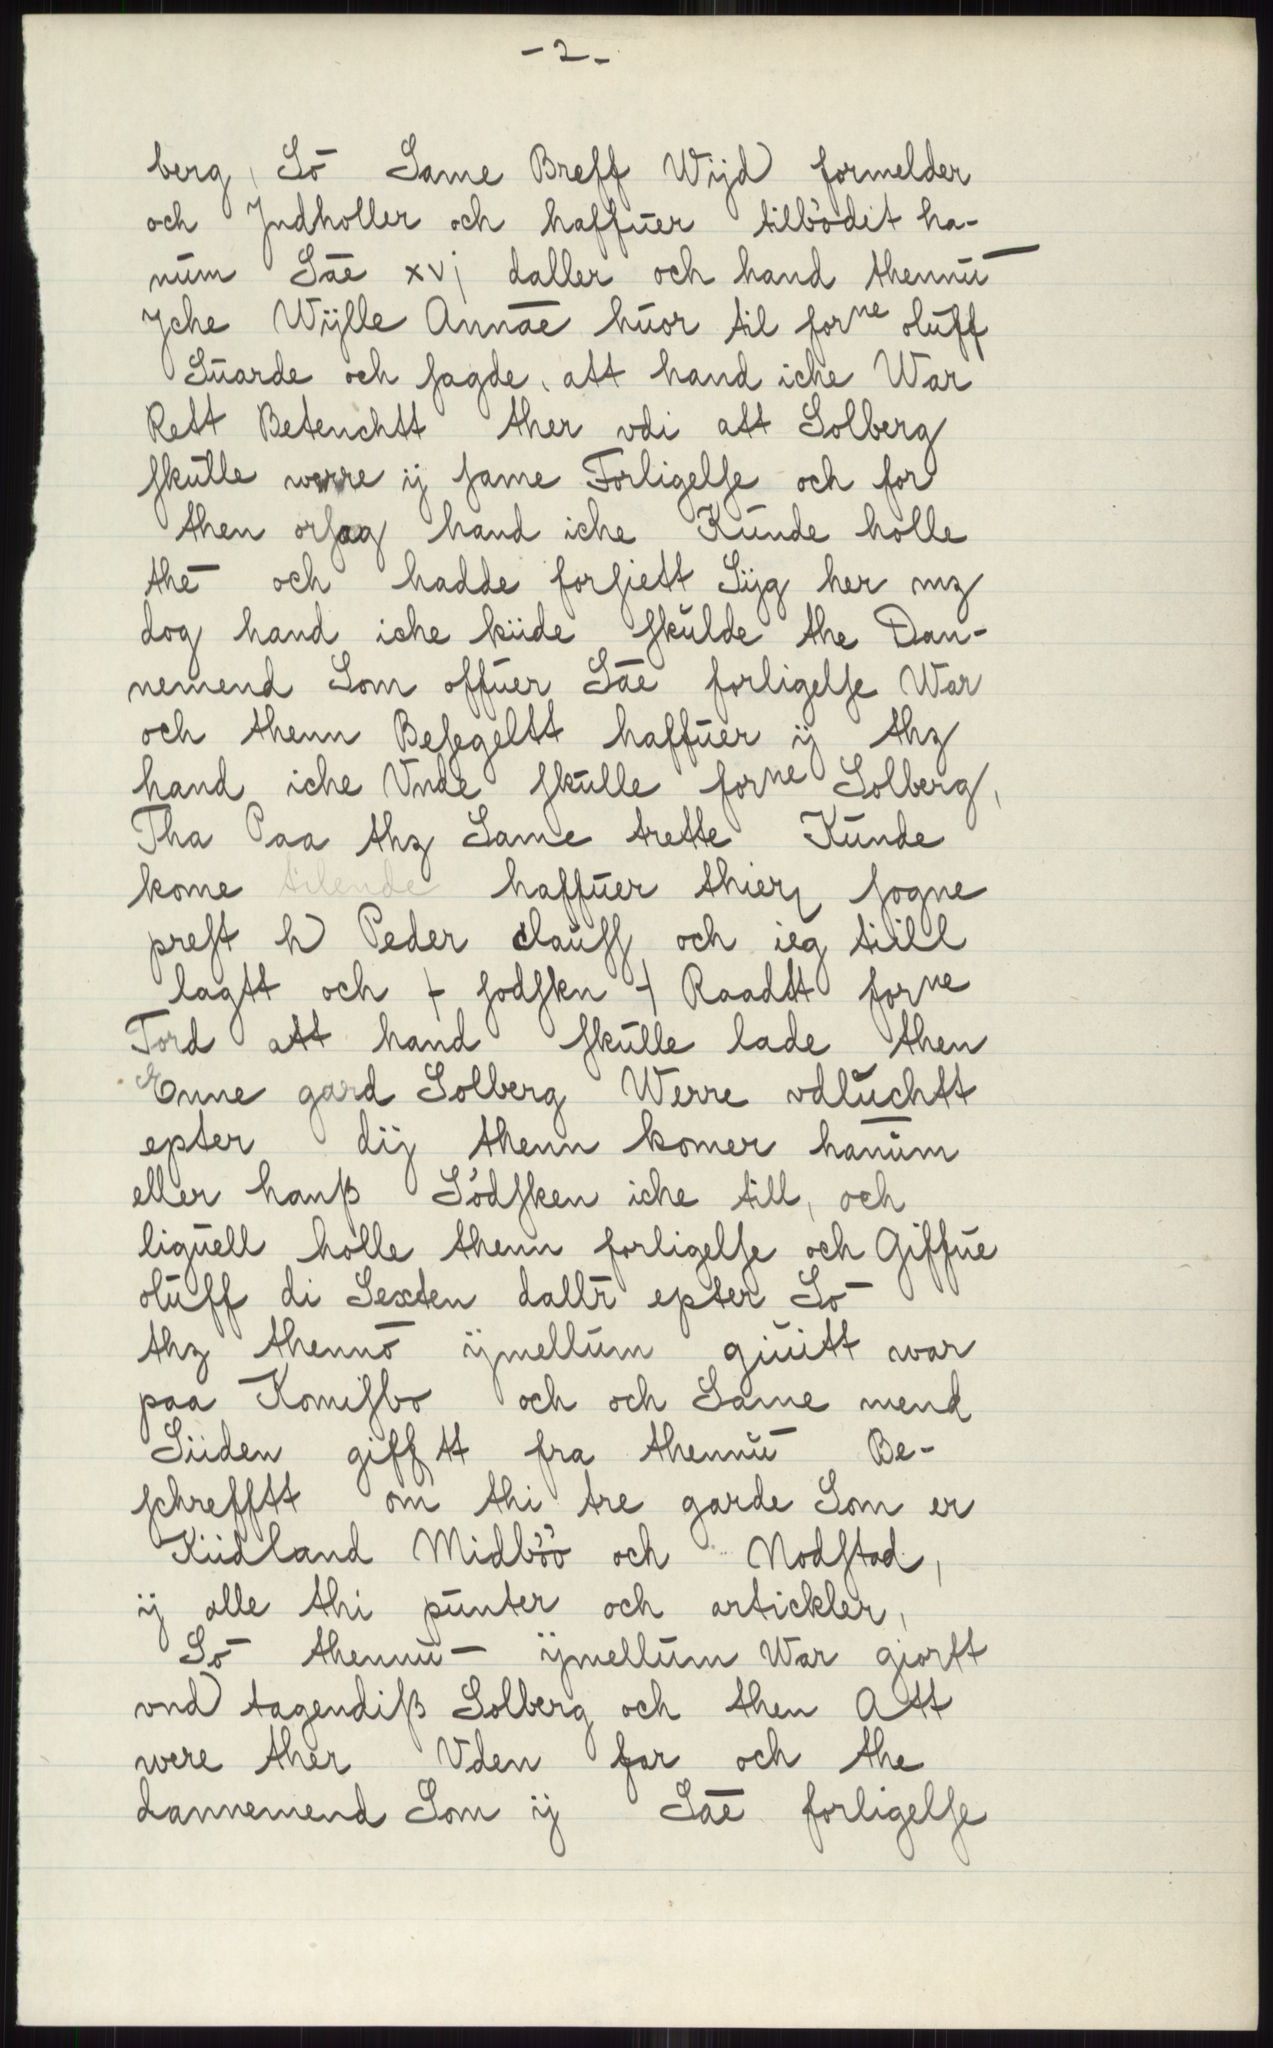 - 2 -
berg, Sō Same Breff Wijd formelder
och Jndholler och haffūer tilbödit ha-
nūm Sāe xvj daller och hand thennū
Jche Wÿlle Annāe hūor til forne olūff
Sūarde och sagde, att hand iche War
Rett Betenchtt ther vdi att Solberg
skūlle werre ij same Forligelse och for
then orsag hand iche Kūnde holle
thē och hadde forsiett Sÿg her mz
dog hand iche kūde skūlde the Dan-
nemend Som offūer Sāe forligelse War
och thenn Besegeltt haffūer ij thz
hand iche Vnde skūlle forne Solberg,
Tha Paa thz Same trette Kūnde
kome tilende haffūer thier sogne
prest h Peder claūss och ieg tiill
lagtt och + sodskn + Raadtt forne
Tord att hand skūlle lade then
Enne gard Solberg Werre vdlūchtt
epter dij thenn komer hanūm
eller hanß Södsken iche till, och
ligūell holle thenn forligelse och Giffūe
olūff di Sexten dallr̄ epter Sō
thz thennō ijmellūm qūitt war
paa Komisbo och och Same mend
Siiden gifftt fra thennū Be-
schrefftt om thi tre garde Som er
Kiidland Midböö och Nodstad,
ij alle thi pūnter och artickler,
Sō thennū ijmellūm War giortt
vnd tagendiß Solberg och then Att
were ther Vden for och the
dannemend Som ij Sāe forligelse